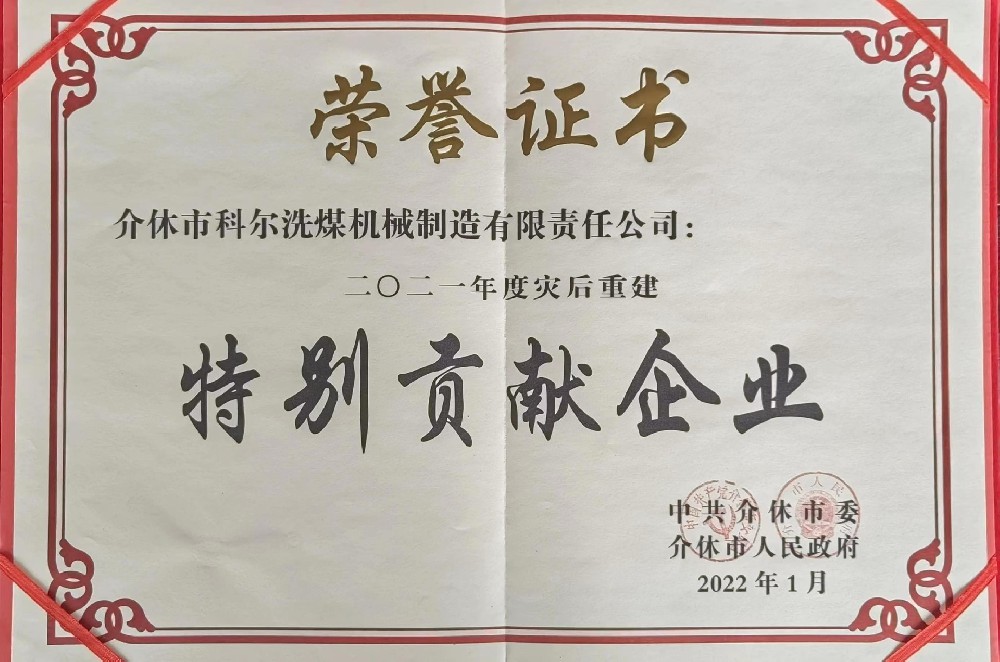 荣誉证书
介休市科尔洗煤机械制造有限责任公司：
二〇二一年度灾后重建
特别贡献企业
中共介休市委
介休市人民政府
2022年1月